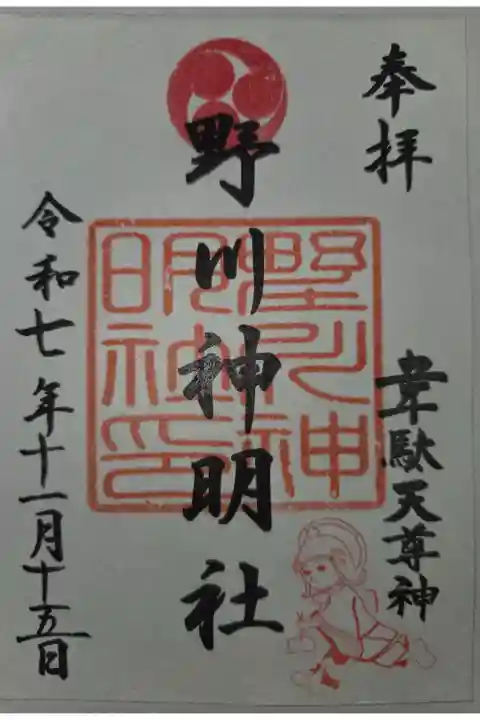 奉拝
韋駄天尊神
野川神明社
野川神
明社印
令和七年十一月十五日